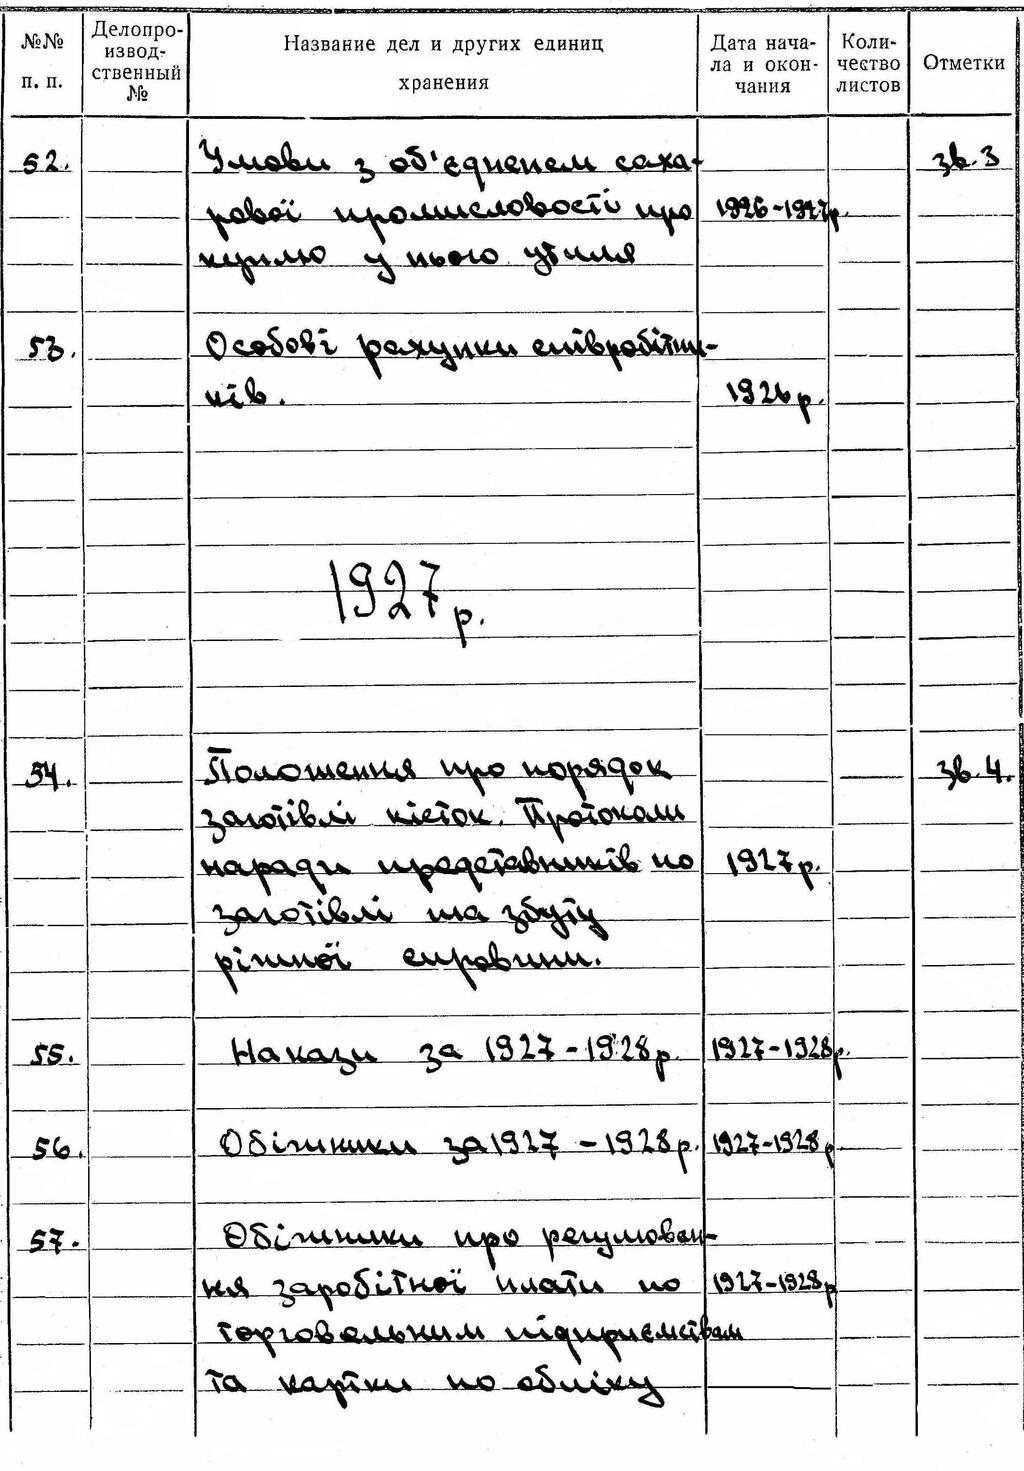 №№ п. п. Делопроизвод-ственный № Название дел и других единиц хранения Дата нача-ла и окон-чания Коли-чество листов Отметки
52. Умови з об'єдненем саха- зв. 3
рової промисловості про 1926-1927р.
куплю у нього утиля
53. Особові рахунки співробітни-
ків. 1926р.
1927р.
54. Положення про порядок зв. 4.
заготівлі кісток. Протоколи
наради представників по 1927р.
заготівлі та збуту
ріжної сировини.
55. Накази за 1927-1928р. 1927-1928р.
56. Обіжники за 1927-1928р. 1927-1928р
57. Обіжники про регулюван-
ня заробітної плати по 1927-1928р
торговельним підприємствам
та картки по обліку